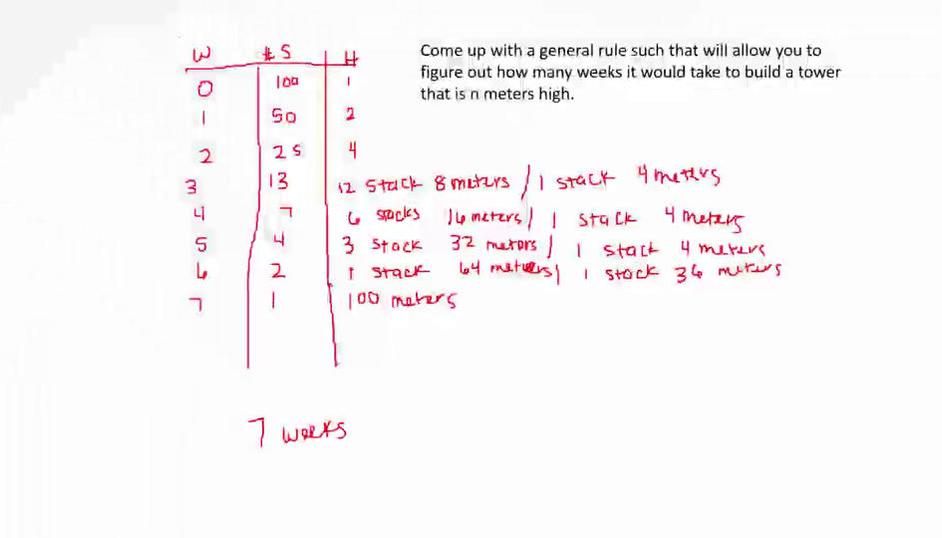 W #S H
0 100 1
1 50 2
2 25 4
3 13 12 stack 8 meters / 1 stack 4 meters
4 7 6 stacks 16 meters / 1 stack 4 meters
5 4 3 stack 32 meters / 1 stack 4 meters
6 2 1 stack 64 meters / 1 stack 36 meters
7 1 100 meters
7 weeks
Come up with a general rule such that will allow you to
figure out how many weeks it would take to build a tower
that is n meters high.